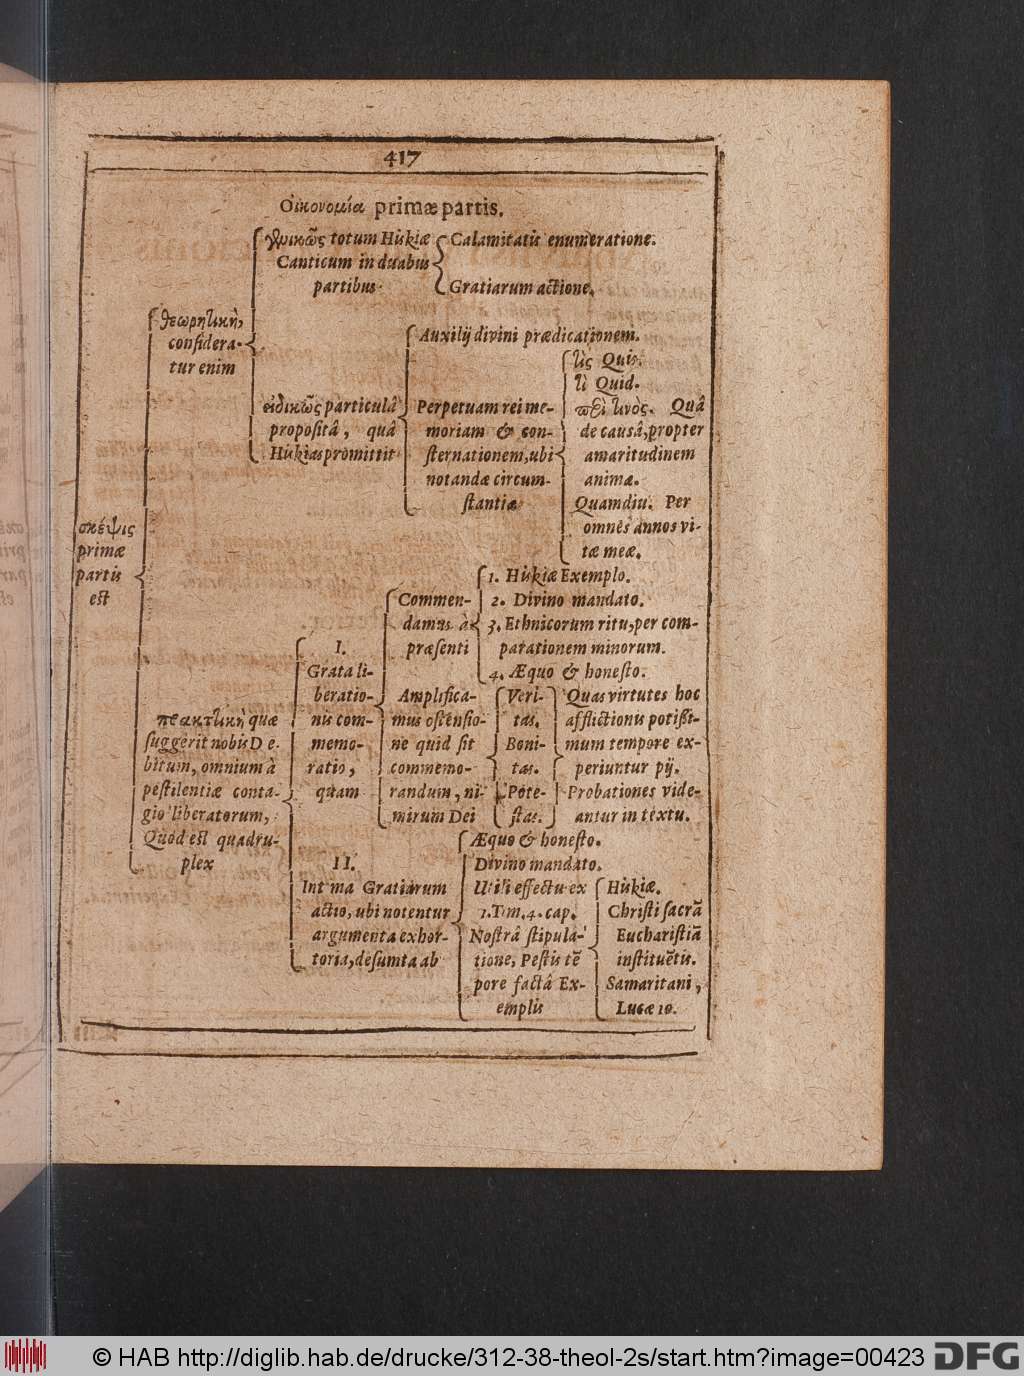 417
Οἰκονομία primæ partis.
γενικῶς totum Hiskiæ
Canticum in duabus
partibus
Calamitatis enumeratione.
Gratiarum actione.
θεωρητικὴ,
considera-
tur enim
εἰδικῶς particulâ
propositâ, quâ
Hiskias promittit
Auxilij divini prædicationem.
Perpetuam rei me-
moriam & con-
sternationem, ubi
notandæ circum-
stantiæ
τὶς Quis.
τὶ Quid.
περὶ τινὸς. Quâ
de causâ, propter
amaritudinem
animæ.
Quamdiu. Per
omnes annos vi-
tæ meæ.
σκέψις
primæ
partis
est
πρακτικὴ quæ
suggerit nobis De-
bitum, omnium à
pestilentiæ conta-
gio liberatorum,
Quod est quadru-
plex
I.
Grata li-
beratio-
nis com-
memo-
ratio,
quam
Commen-
damus à
præsenti
1. Hiskiæ Exemplo.
2. Divino mandato.
3. Ethnicorum ritu, per com-
parationem minorum.
4. Æquo & honesto.
Amplifica-
mus ostensio-
ne quid sit
commemo-
randum, ni-
mirum Dei
Veri-
tas.
Boni-
tas.
Pote-
stas.
Quas virtutes hoc
afflictionis potissi-
mum tempore ex-
periuntur pij.
Probationes vide-
antur in textu.
II.
Intima Gratiarum
actio, ubi notentur
argumenta exhor-
toria, desumta ab
Æquo & honesto.
Divino mandato.
Utili effectu ex
1. Tim. 4. cap.
Nostrâ stipula-
tione, Pestis tē
pore factâ Ex-
emplis
Hiskiæ.
Christi sacrā
Eucharistiā
instituētis.
Samaritani,
Lucæ 10.
© HAB http://diglib.hab.de/drucke/312-38-theol-2s/start.htm?image=00423
DFG